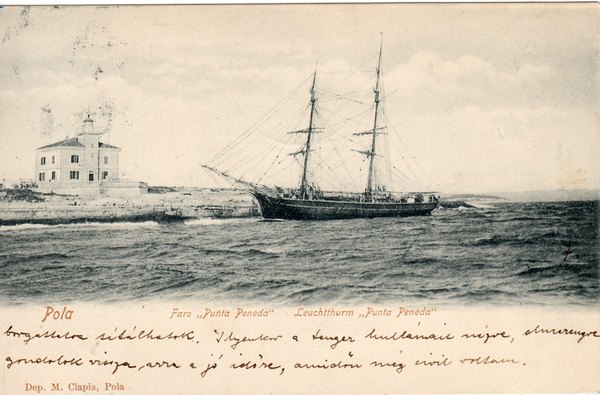 Pola Faro „Punta Peneda" Leuchtthurm „Punta Peneda"
borgatva sétálhatok. Ilyenkor a tenger hullámait nézve, elmerengve
gondolok vissza, arra a jó időre, amidőn még civil voltam.
Dep. M. Clapis, Pola